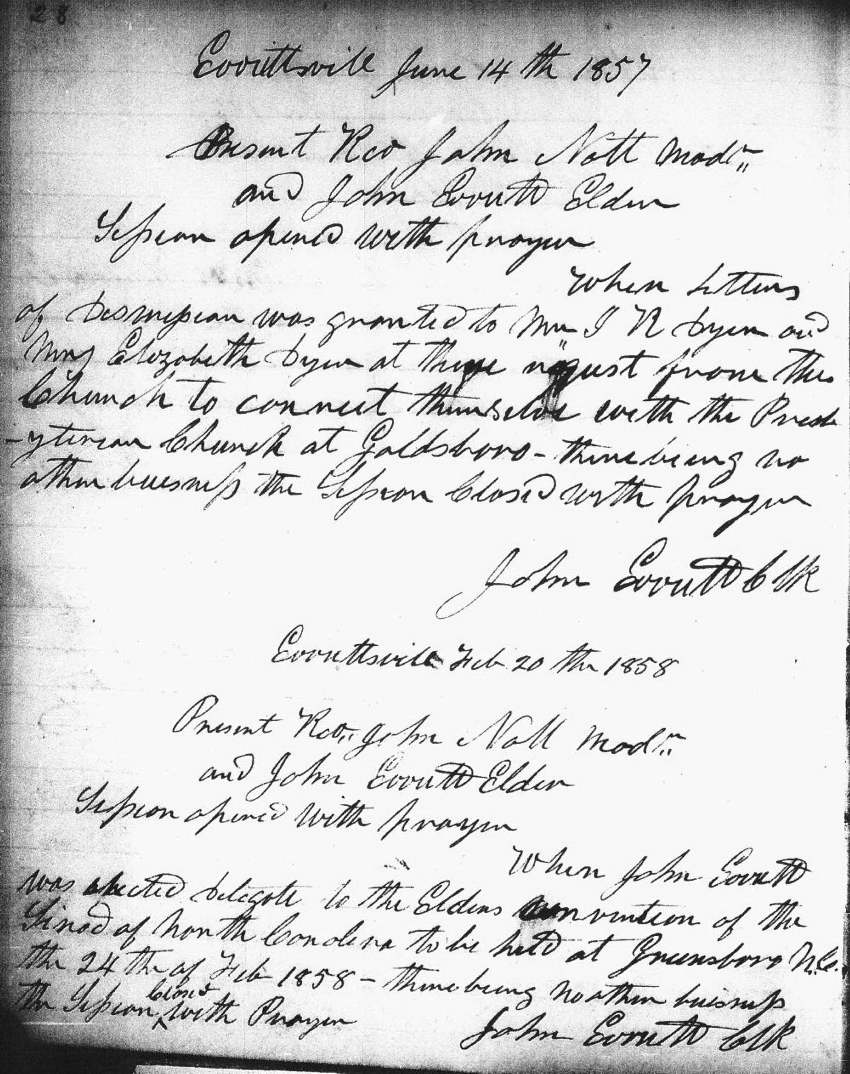 28
Everittsville June 14 th 1857
Present Rev John Nott Modr
and John Everitt Elder
Session opened with prayer
When Letters
of Desmission was granted to Mr I R Dyer and
Mrs Elizabeth Dyer at there request from this
Church to connect themselves with the Presb
-yterian Church at Goldsboro - there being no
other buisness the Session Closed with prayer
John Everitt Clk
Everittsville Feb 20 th 1858
Present Rev. John Nott Modr
and John Everitt Elder
Session opened with prayer
When John Everitt
was elected Delegate to the Elders convention of the
Sinod of North Carolina to be held at Greensboro N.C.
the 24 th of Feb 1858 - there being no other buisness
the Session Closed with Prayer
John Everitt Clk